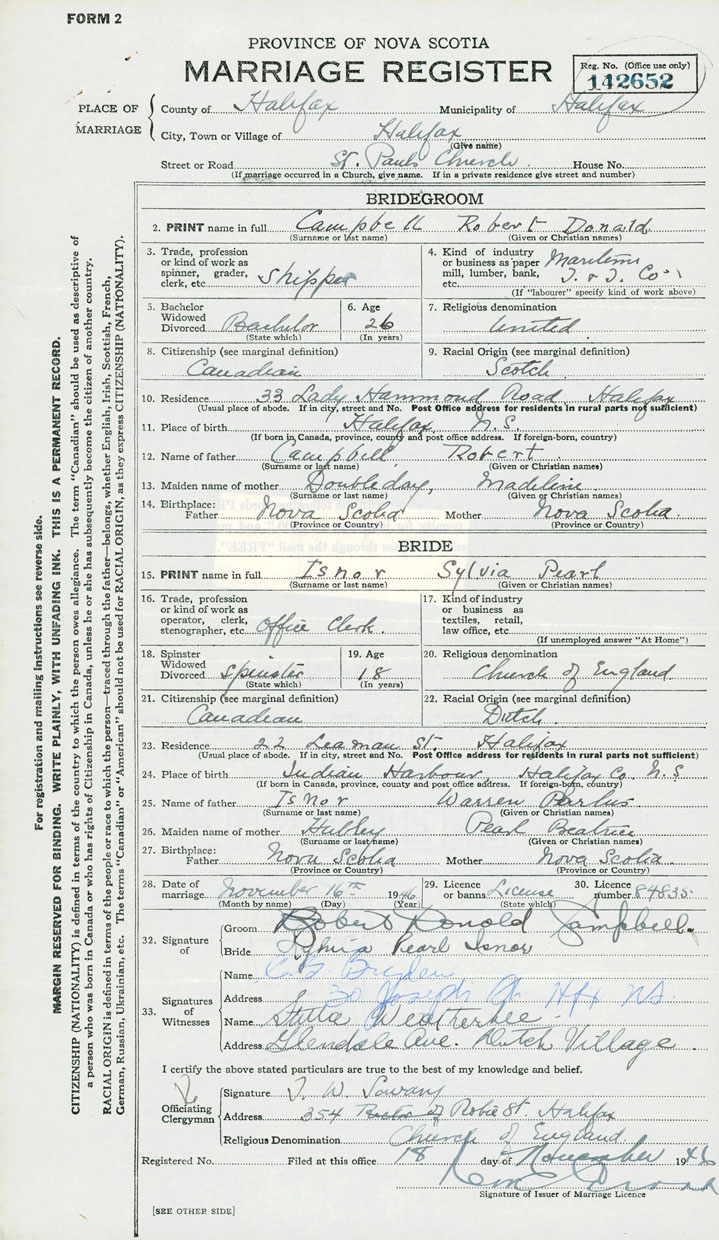 FORM 2
PROVINCE OF NOVA SCOTIA
MARRIAGE REGISTER
Reg. No. (Office use only)
142652
PLACE OF MARRIAGE
County of Halifax Municipality of Halifax
City, Town or Village of Halifax
(Give name)
Street or Road St. Pauls Church House No.
(If marriage occurred in a Church, give name. If in a private residence give street and number)
BRIDEGROOM
2. PRINT name in full Campbell Robert Donald
(Surname or last name) (Given or Christian names)
3. Trade, profession or kind of work as spinner, grader, clerk, etc. Shipper
4. Kind of industry or business as paper mill, lumber, bank, etc. Maritime T. & T. Co.
(If "labourer" specify kind of work above)
5. Bachelor Widowed Divorced Bachelor
(State which)
6. Age 26
(In years)
7. Religious denomination
United
8. Citizenship (see marginal definition)
Canadian
9. Racial Origin (see marginal definition)
Scotch
10. Residence 33 Lady Hammond Road Halifax
(Usual place of abode. If in city, street and No. Post Office address for residents in rural parts not sufficient)
11. Place of birth Halifax, N.S.
(If born in Canada, province, county and post office address. If foreign-born, country)
12. Name of father Campbell Robert
(Surname or last name) (Given or Christian names)
13. Maiden name of mother Doubleday, Madeline
(Surname or last name) (Given or Christian names)
14. Birthplace: Father Nova Scotia Mother Nova Scotia
(Province or Country) (Province or Country)
BRIDE
15. PRINT name in full Isnor Sylvia Pearl
(Surname or last name) (Given or Christian names)
16. Trade, profession or kind of work as operator, clerk, stenographer, etc. Office Clerk.
17. Kind of industry or business as textiles, retail, law office, etc.
(If unemployed answer "At Home")
18. Spinster Widowed Divorced Spinster
(State which)
19. Age 18
(In years)
20. Religious denomination
Church of England
21. Citizenship (see marginal definition)
Canadian
22. Racial Origin (see marginal definition)
Dutch
23. Residence 22 Leaman St. Halifax
(Usual place of abode. If in city, street and No. Post Office address for residents in rural parts not sufficient)
24. Place of birth Indian Harbour, Halifax Co. N.S
(If born in Canada, province, county and post office address. If foreign-born, country)
25. Name of father Isnor Warren
(Surname or last name) (Given or Christian names)
26. Maiden name of mother Hubley Pearl Beatrice
(Surname or last name) (Given or Christian names)
27. Birthplace: Father Nova Scotia Mother Nova Scotia
(Province or Country) (Province or Country)
28. Date of marriage November 16th 1946
(Month by name) (Day) (Year)
29. Licence or banns License
(State which)
30. Licence number 84835
32. Signature of
Groom Robert Donald Campbell.
Bride Sylvia Pearl Isnor
33. Signatures of Witnesses
Name
Address 30 Joseph Hfx NS.
Name Stella Weatherbee
Address Glendale Ave. Dutch Village
I certify the above stated particulars are true to the best of my knowledge and belief.
Officiating Clergyman
Signature W.
Address 354 Robie St. Halifax
Religious Denomination Church of England
Registered No. Filed at this office 18 day of November 1946
Signature of Issuer of Marriage Licence
[SEE OTHER SIDE]
For registration and mailing instructions see reverse side.
MARGIN RESERVED FOR BINDING. WRITE PLAINLY, WITH UNFADING INK. THIS IS A PERMANENT RECORD.
CITIZENSHIP (NATIONALITY) is defined in terms of the country to which the person owes allegiance. The term "Canadian" should be used as descriptive of
a person who was born in Canada or who has rights of Citizenship in Canada, unless he or she has subsequently become the citizen of another country.
RACIAL ORIGIN is defined in terms of the people or race to which the person—traced through the father—belongs, whether English, Irish, Scottish, French,
German, Russian, Ukrainian, etc. The terms "Canadian" or "American" should not be used for RACIAL ORIGIN, as they express CITIZENSHIP (NATIONALITY).